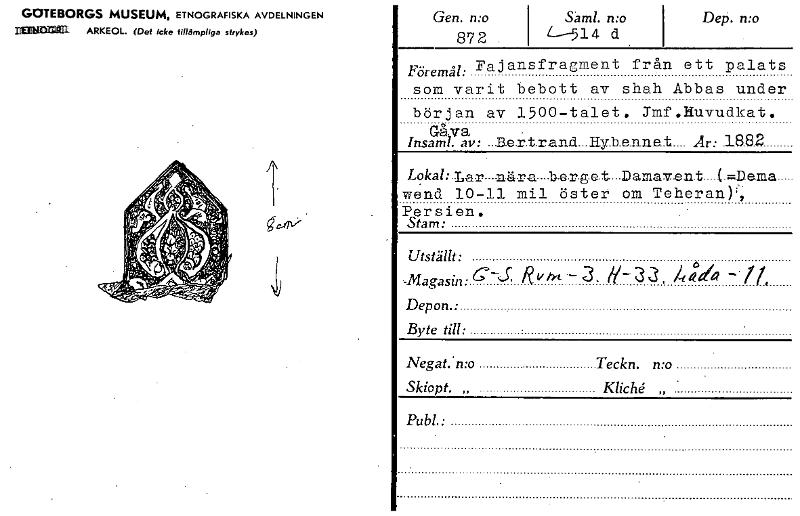 GÖTEBORGS MUSEUM, ETNOGRAFISKA AVDELNINGEN
ARKEOL. (Det icke tillämpliga strykes)
8 cm
Gen. n:o Saml. n:o Dep. n:o
872 514 d
Föremål: Fajansfragment från ett palats
som varit bebott av shah Abbas under
början av 1500-talet. Jmf. Huvudkat.
Gåva
Insaml. av: Bertrand Hybennet År: 1882
Lokal: Lar nära berget Damavent (=Dema
wend 10-11 mil öster om Teheran),
Persien.
Stam:
Utställt:
Magasin: G-S. Rum-3. H-33. Låda-11.
Depon.:
Byte till:
Negat. n:o Teckn. n:o
Skiopt. „ Kliché „
Publ.: